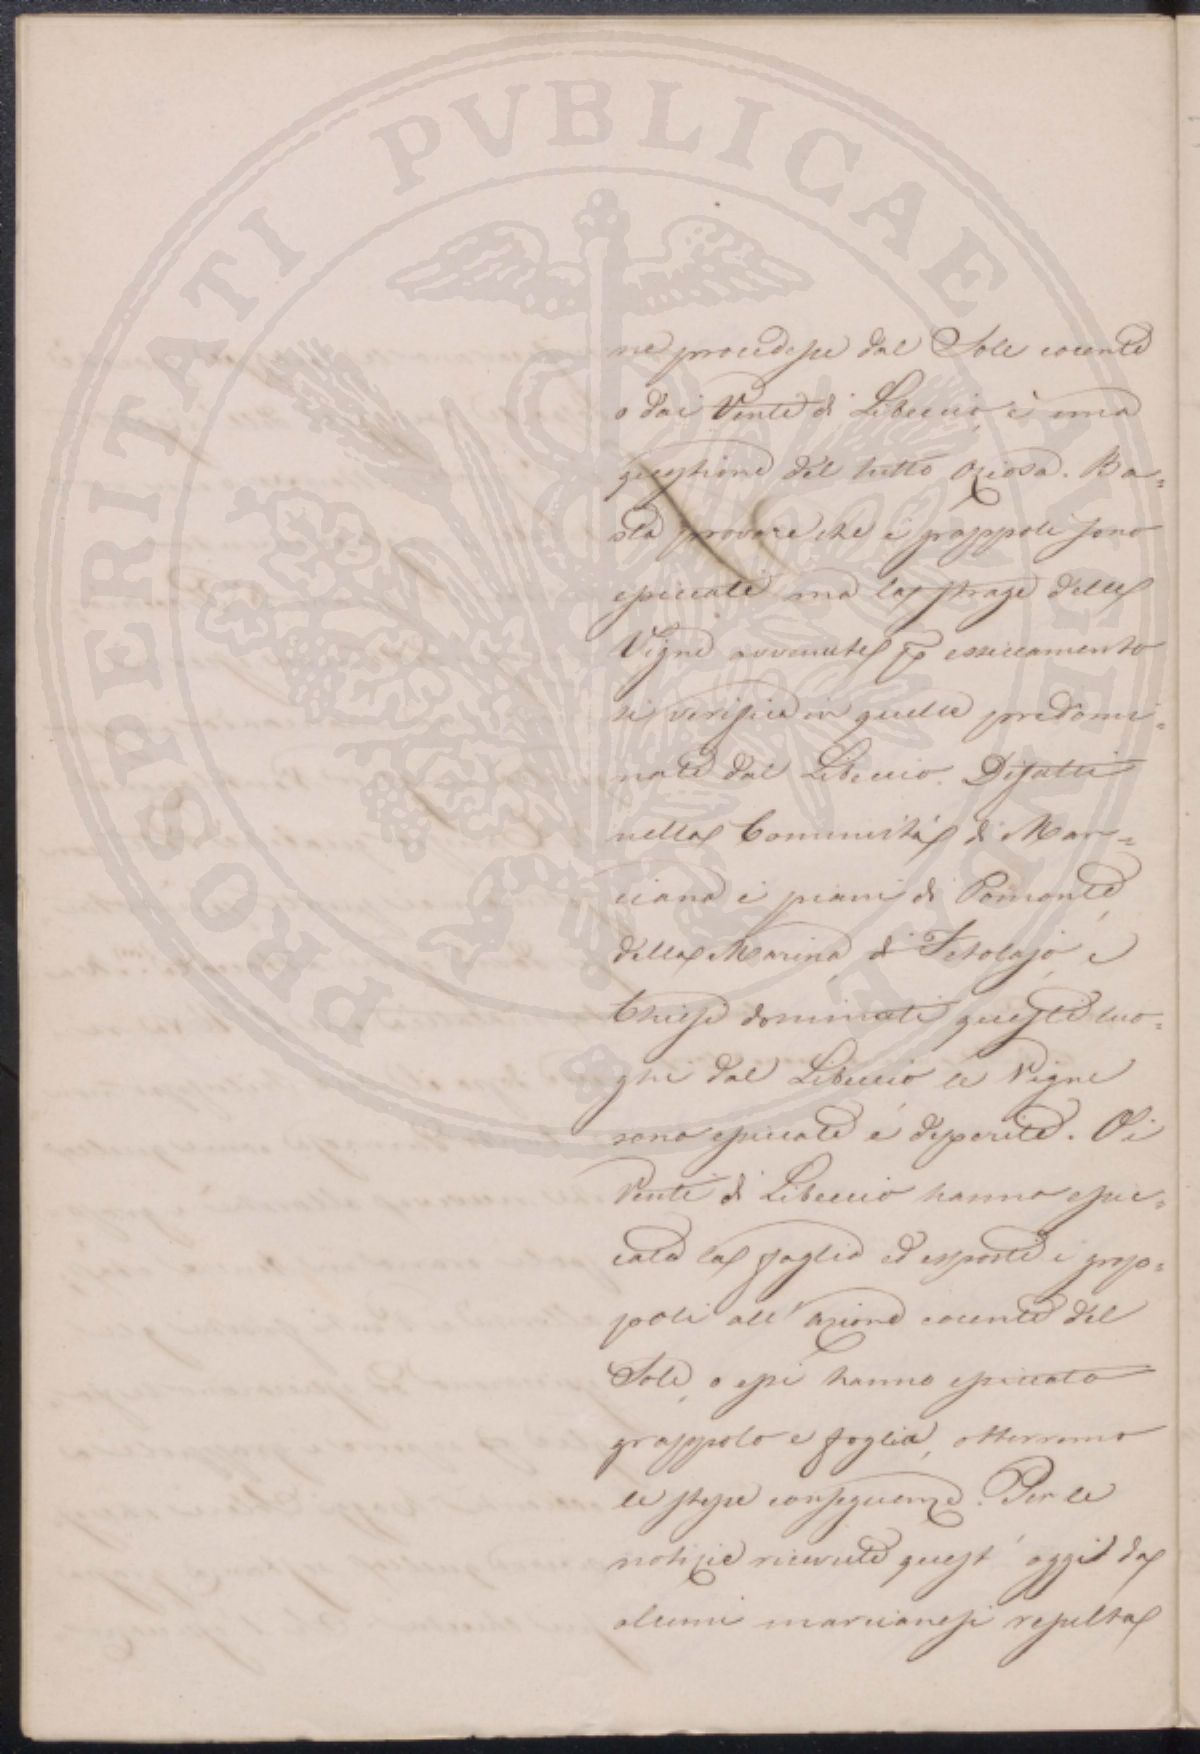 PROSPERITATI PVBLICAE AVGENDAE
ne procedesse dal Sole cocente
o dai Venti di Libeccio, è una
questione del tutto oziosa. Ba=
sta provare che i grappoli sono
essiccati ma la strage delle
Vigne avvenuta p essiccamento
si verifica in quelle predomi=
nate dal Libeccio. Difatti
nella Comunità di Mar=
ciana i piani di Pomonte,
della Marina, di Fetolajo, e
Chiessi dominati questi luo=
ghi dal Libeccio le Vigne
sono essiccate e disperite. O i
Venti di Libeccio hanno essic=
cata la foglia ed esposti i grap=
poli all'azione cocente del
Sole, o essi hanno essiccato
grappolo e foglia, otterremo
le stesse conseguenze. Per le
notizie ricevute quest'oggi da
alcuni marcianesi resulta